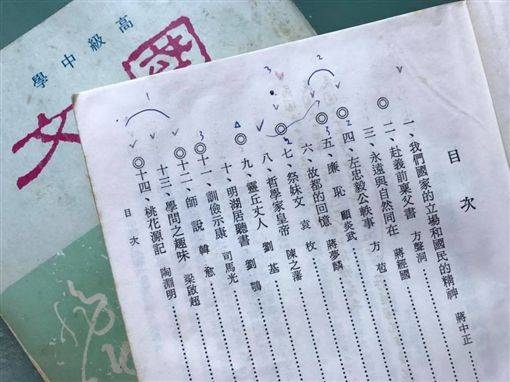 高級中學
國文
目次
一、我們國家的立場和國民的精神 蔣中正
◎二、赴義前稟父書 方聲洞
三、永遠與自然同在 蔣經國
◎四、左忠毅公軼事 方苞
◎五、廉恥 顧炎武
六、故都的回憶 蔣夢麟
◎七、祭妹文 袁枚
八、哲學家皇帝 陳之藩
九、靈丘丈人 劉基
十、明湖居聽書 劉鶚
◎十一、訓儉示康 司馬光
◎十二、師說 韓愈
十三、學問之趣味 梁啟超
◎十四、桃花源記 陶淵明
目次